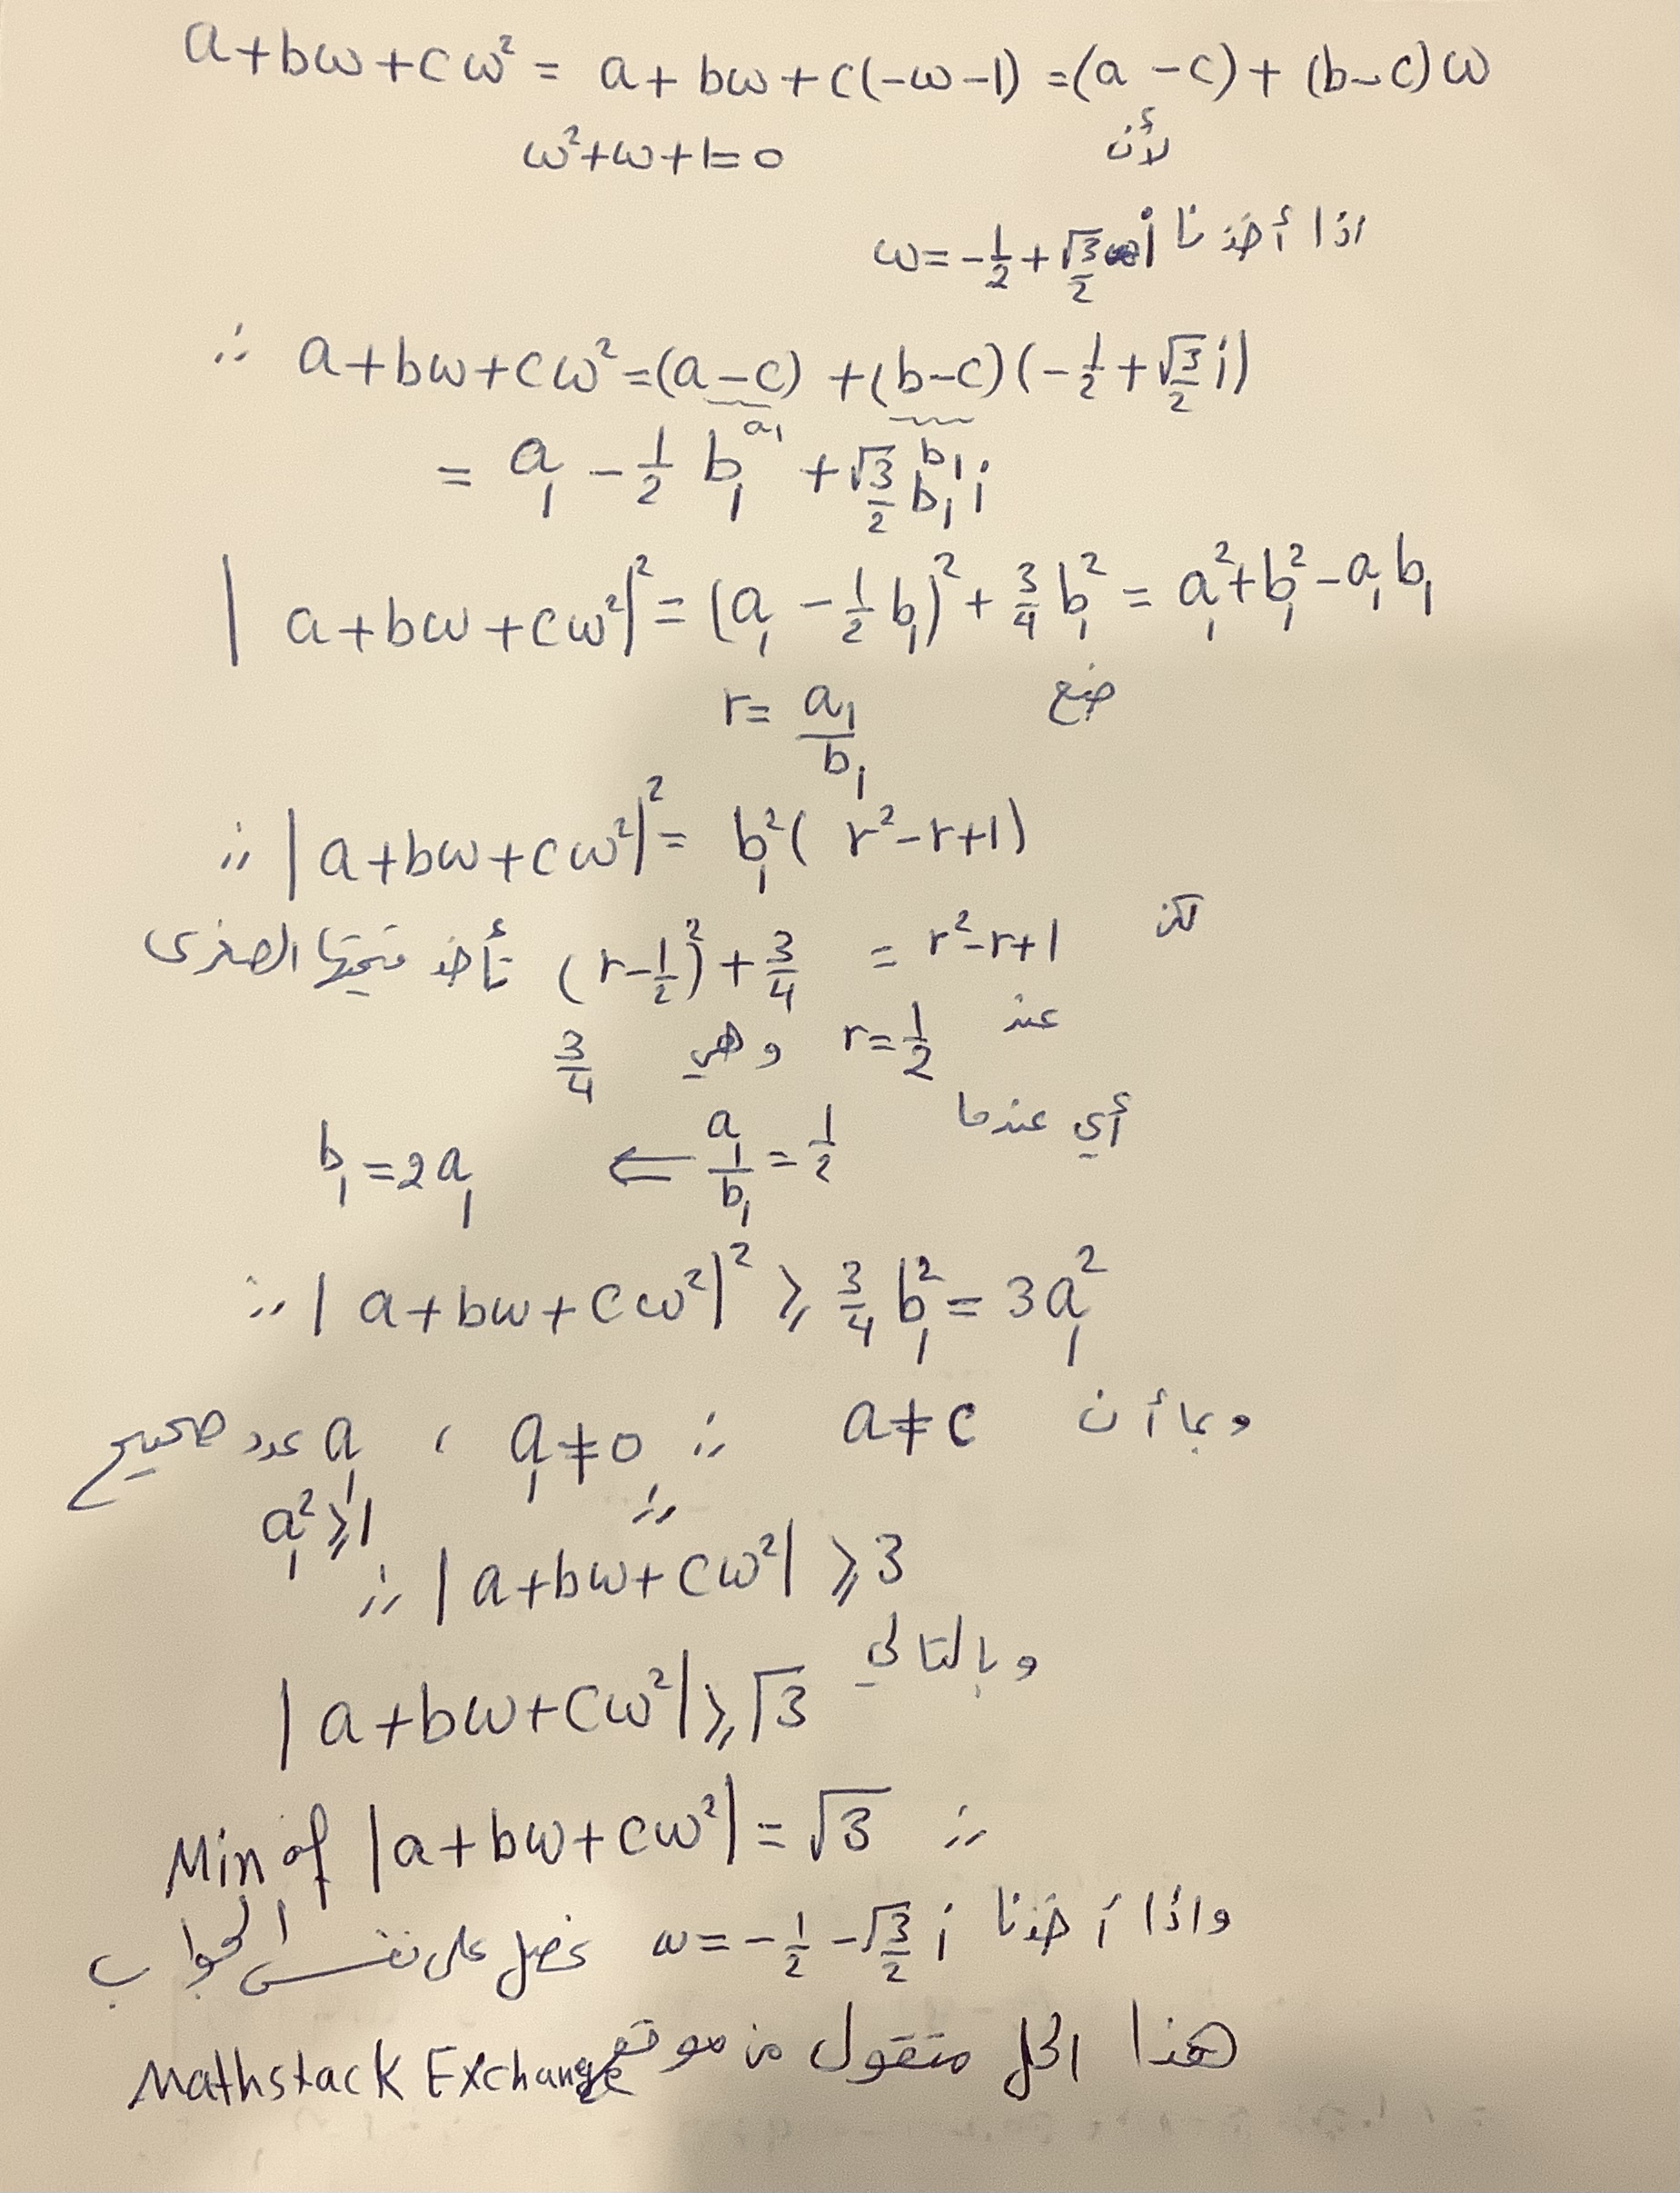 a+bω+cω² = a+bω+c(-ω-1) = (a-c)+(b-c)ω
لأن ω²+ω+1=0
اذا أخذنا ω=-1/2+√3/2 i
∴ a+bω+cω²=(a-c)+(b-c)(-1/2+√3/2 i)
a₁ b₁
= a₁ - 1/2 b₁ + √3/2 b₁ i
|a+bω+cω²|² = (a₁ - 1/2 b₁)² + 3/4 b₁² = a₁²+b₁²-a₁b₁
ضع r = a₁/b₁
∴ |a+bω+cω²|² = b₁²(r²-r+1)
لكن r²-r+1 = (r-1/2)²+3/4 تأخذ قيمتها الصغرى
عند r=1/2 وهي 3/4
أي عندما a₁/b₁=1/2 ⇐ b₁=2a₁
∴ |a+bω+cω²|² ⩾ 3/4 b₁² = 3a₁²
وبما أن a≠c ∴ a₁≠0 ، a₁ عدد صحيح
∴ a₁²⩾1
∴ |a+bω+cω²| ⩾ 3
وبالتالي
|a+bω+cω²| ⩾ √3
∴ Min of |a+bω+cω²| = √3
واذا أخذنا ω=-1/2-√3/2 i نحصل على نفس الجواب
هذا الحل منقول من موقع Mathstack Exchange